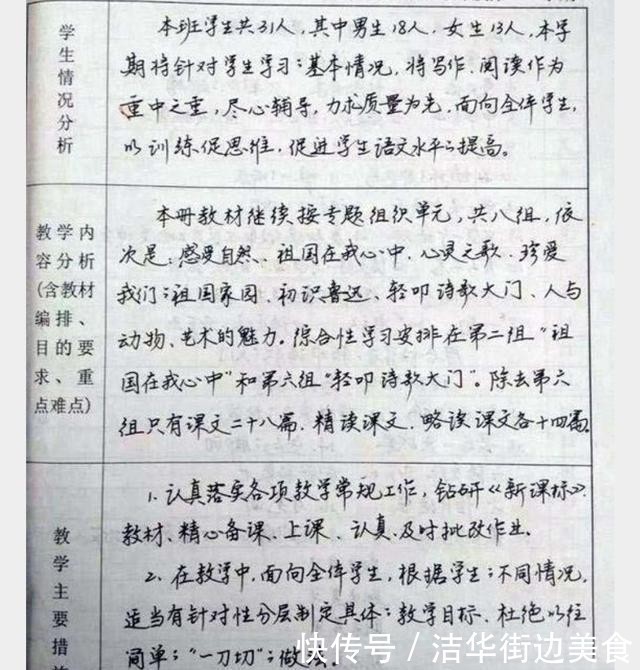 学生情况分析
本班学生共31人，其中男生18人，女生13人，本学
期将针对学生学习的基本情况，将写作、阅读作为
重中之重，尽心辅导，力求质量为先，面向全体学生，
以训练促思维，促进学生语文水平的提高。
教学内
容分析
(含教材
编排、
目的要
求、重
点难点)
本册教材继续按专题组织单元，共八组，依
次是：感受自然、祖国在我心中、心灵之歌、珍爱
我们的祖国家园、初识鲁迅、轻叩诗歌大门、人与
动物、艺术的魅力。综合性学习安排在第二组“祖
国在我心中”和第六组“轻叩诗歌大门”。除去第六
组只有课文二十八篇，精读课文、略读课文各十四篇。
教学主要措施
1.认真落实各项教学常规工作，钻研《新课标》
教材、精心备课、上课、认真及时批改作业。
2.在教学中，面向全体学生，根据学生的不同情况，
适当有针对性分层制定具体的教学目标，杜绝以往
简单的“一刀切”的做法。
快传号／洁华街边美食